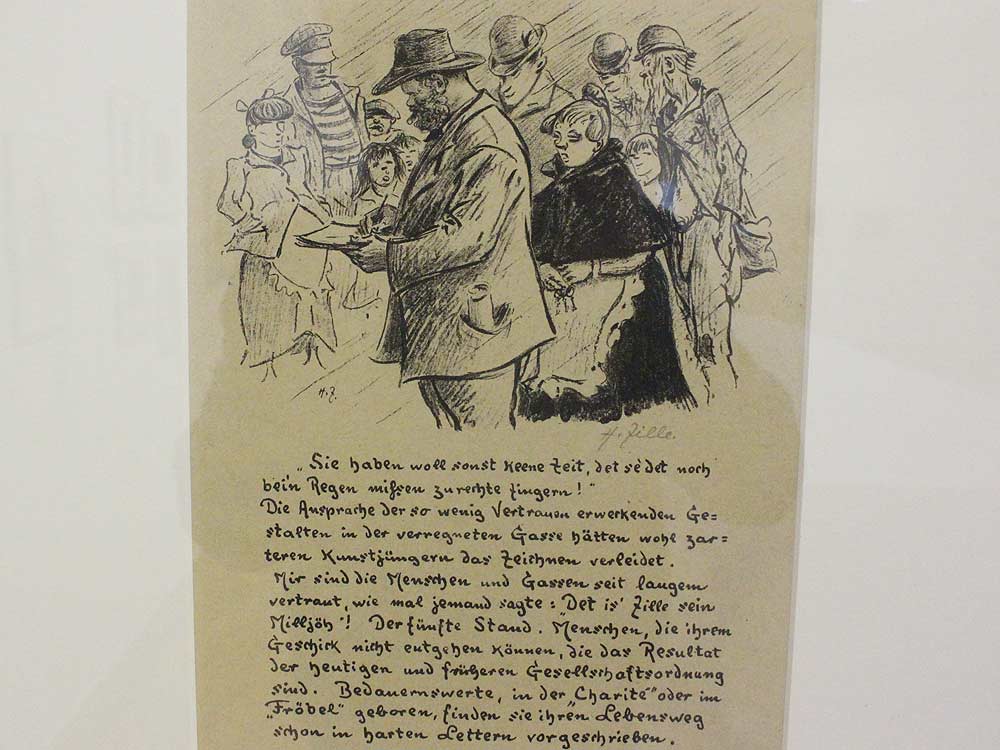 H. Z.
H. Zille.
„Sie haben woll sonst keene Zeit, det se det noch
bei'n Regen missen zurechte fingern!“
Die Ansprache der so wenig Vertrauen erweckenden Ge=
stalten in der verregneten Gasse hätten wohl zar=
teren Kunstjüngern das Zeichnen verleidet.
Mir sind die Menschen und Gassen seit langem
vertraut, wie mal jemand sagte: „Det is' Zille sein
Milljöh“! Der fünfte Stand. Menschen, die ihrem
Geschick nicht entgehen können, die das Resultat
der heutigen und früheren Gesellschaftsordnung
sind. Bedauernswerte, in der „Charité“ oder im
„Fröbel“ geboren, finden sie ihren Lebensweg
schon in harten Lettern vorgeschrieben.